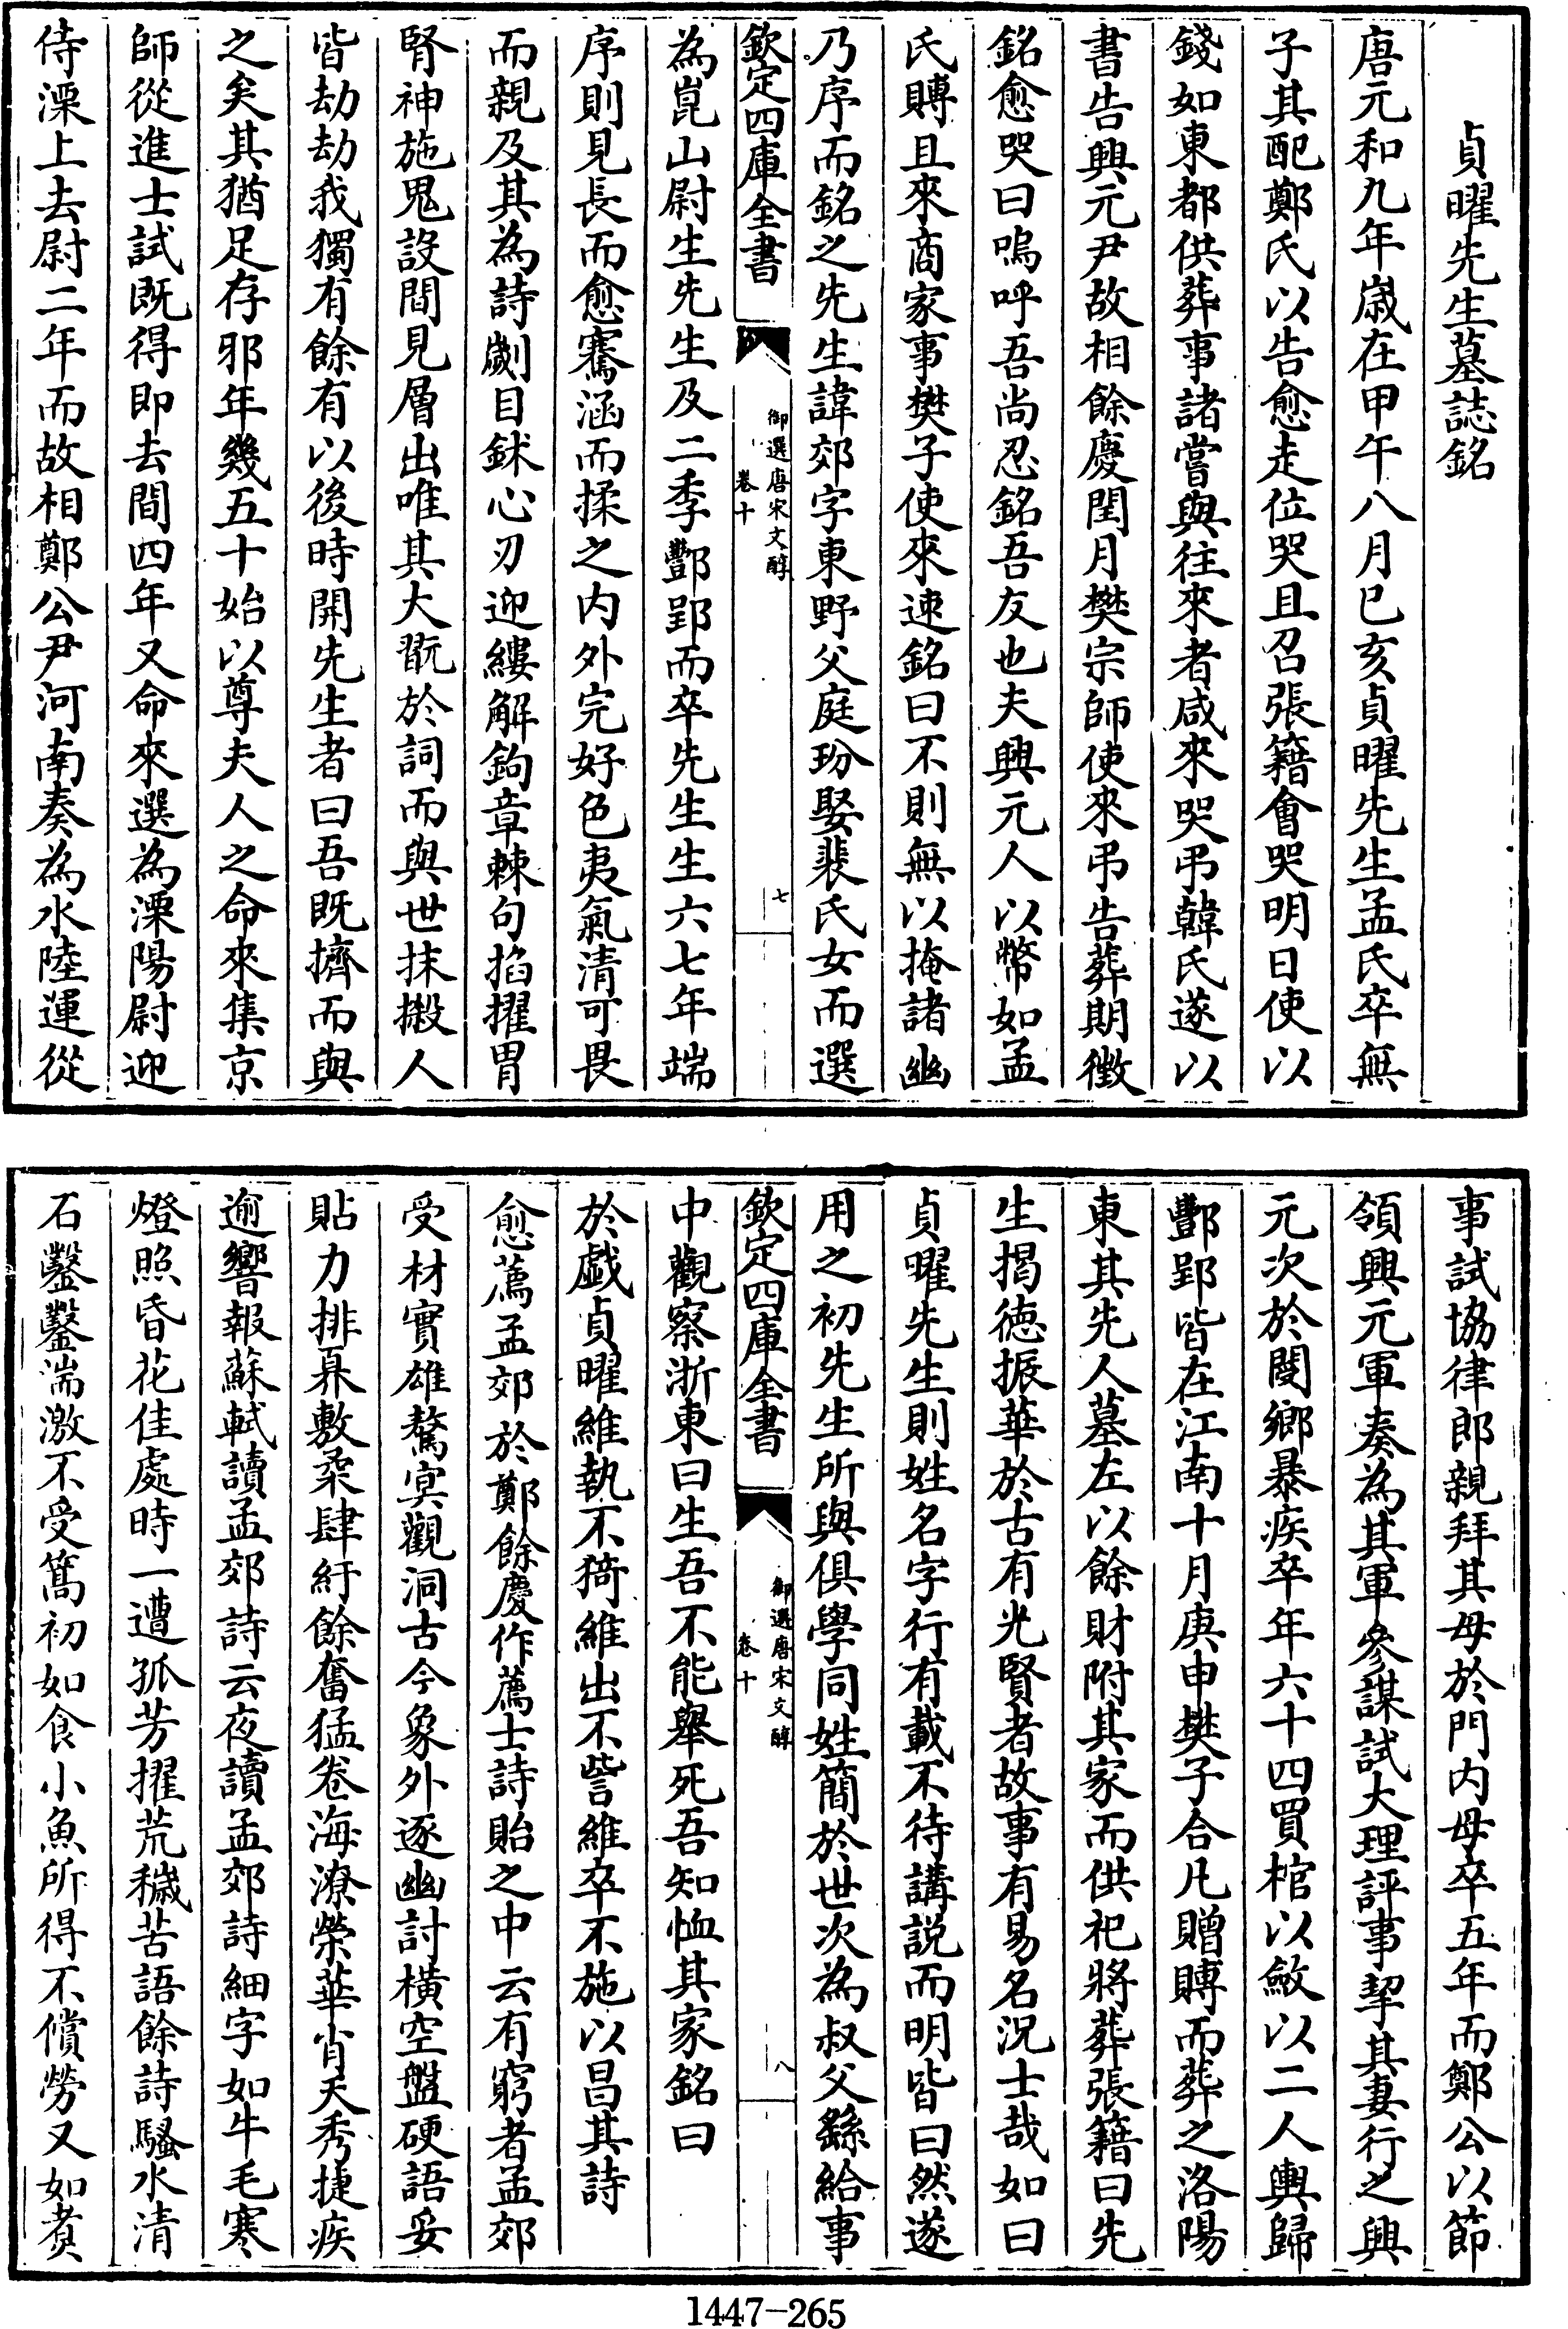 貞曜先生墓誌銘
唐元和九年歲在甲午八月已亥貞曜先生孟氏卒無
子其配鄭氏以告愈走位哭且召張籍會哭明日使以
錢如東都供葬事諸嘗與往來者咸來哭弔韓氏遂以
書告興元尹故相餘慶閏月樊宗師使來弔告葬期徵
銘愈哭曰嗚呼吾尚忍銘吾友也夫興元人以幣如孟
氏賻且來商家事樊子使來速銘曰不則無以掩諸幽
乃序而銘之先生諱郊字東野父庭玢娶裴氏女而選
欽定四庫全書
御選唐宋文醇
卷十
七
為崑山尉生先生及二季酆郢而卒先生生六七年端
序則見長而愈騫涵而揉之内外完好色夷氣清可畏
而親及其為詩劌目鉥心刃迎縷解鉤章棘句掐擢胃
腎神施鬼設間見層出唯其大翫於詞而與世抹摋人
皆劫劫我獨有餘有以後時開先生者曰吾既擠而與
之矣其猶足存邪年幾五十始以尊夫人之命來集京
師從進士試既得即去間四年又命來選為溧陽尉迎
侍溧上去尉二年而故相鄭公尹河南奏為水陸運從
事試協律郎親拜其母於門内母卒五年而鄭公以節
領興元軍奏為其軍參謀試大理評事挈其妻行之興
元次於閿鄉暴疾卒年六十四買棺以斂以二人輿歸
酆郢皆在江南十月庚申樊子合凡贈賻而葬之洛陽
東其先人墓左以餘財附其家而供祀將葬張籍曰先
生揭德振華於古有光賢者故事有易名況士哉如曰
貞曜先生則姓名字行有載不待講説而明皆曰然遂
用之初先生所與俱學同姓簡於世次為叔父繇給事
欽定四庫全書
御選唐宋文醇
卷十
八
中觀察浙東曰生吾不能舉死吾知恤其家銘曰
於戯貞曜維執不猗維出不訾維卒不施以昌其詩
愈薦孟郊於鄭餘慶作薦士詩貽之中云有窮者孟郊
受材實雄驁冥觀洞古今象外逐幽討橫空盤硬語妥
貼力排奡敷柔肆紆餘奮猛卷海潦榮華肖天秀捷疾
逾響報蘇軾讀孟郊詩云夜讀孟郊詩細字如牛毛寒
燈照昏花佳處時一遭孤芳擢荒穢苦語餘詩騷水清
石鑿鑿湍激不受篙初如食小魚所得不償勞又如煑
1447-265